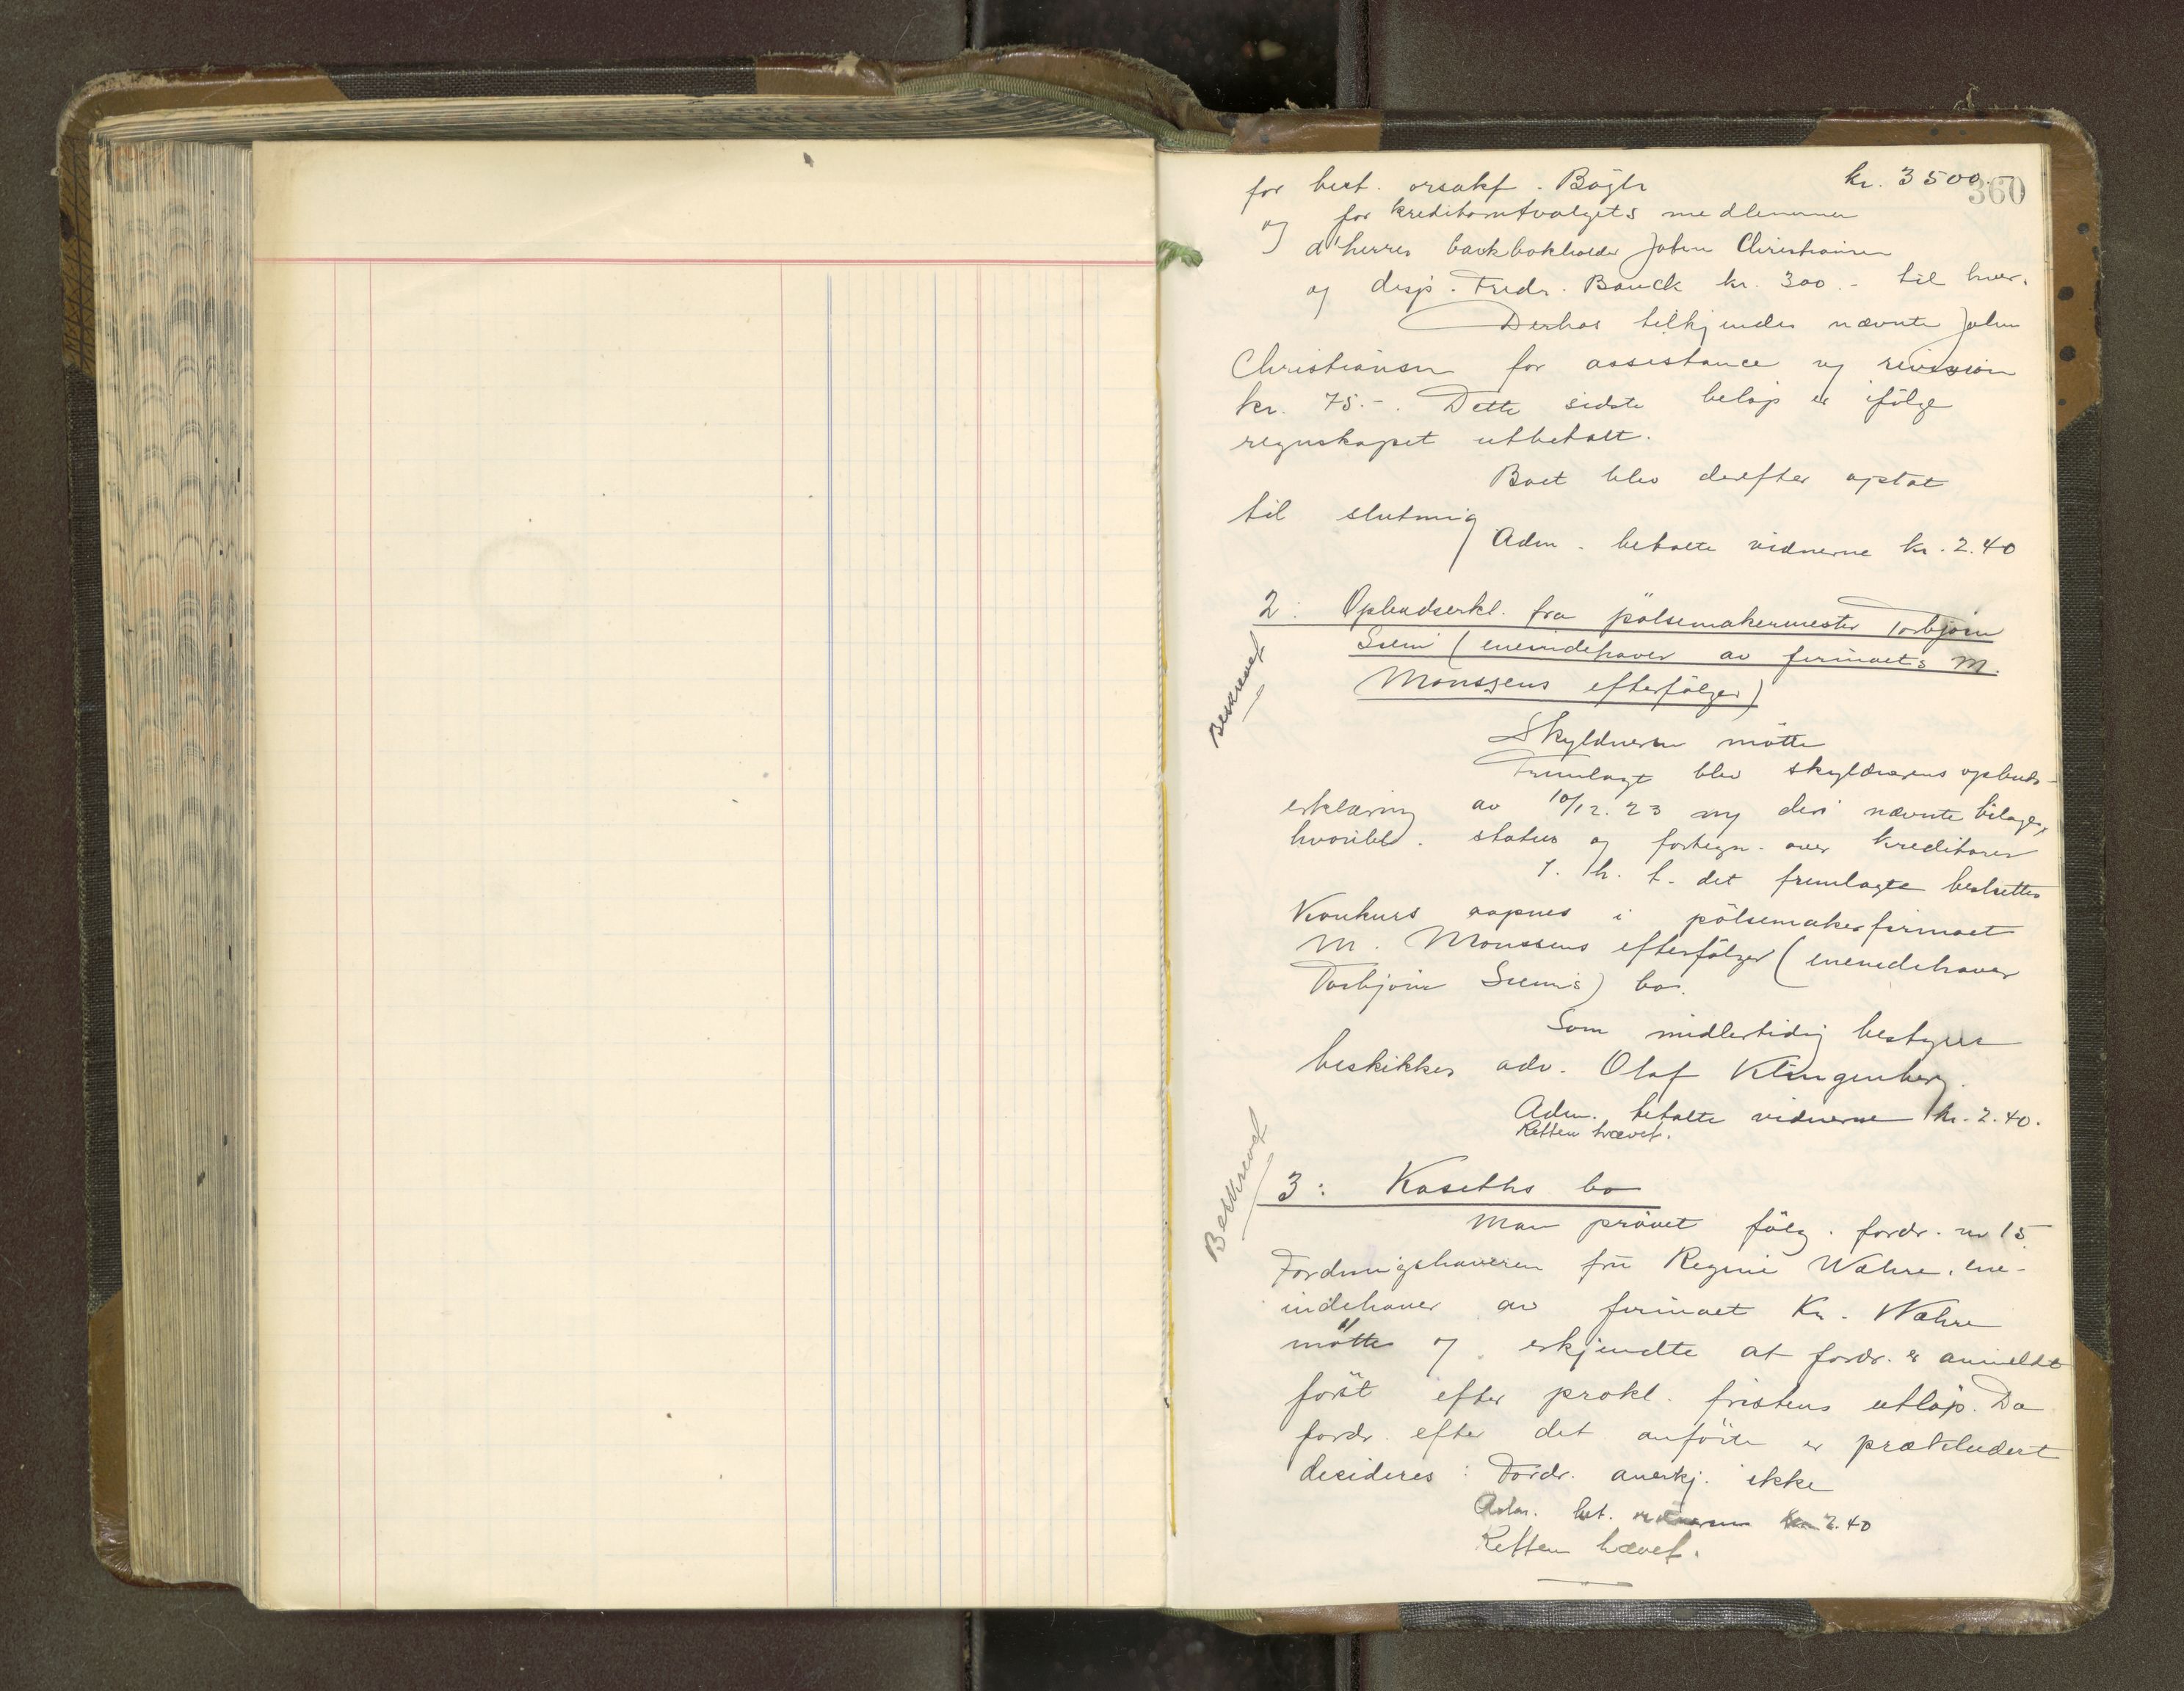 360
for best. orsakf. Bøgh kr. 3500.-
og for kreditorutvalgets medlemmer
d'herrer bankbokholder John Christiansen
og disp. Fredr. Bauck kr. 300.- til hver.
Derhos tilkjendes nævnte John
Christiansen for assistance og revision
kr. 75.-. Dette sidste beløp er ifølge
regnskapet utbetalt.
Boet blev derefter optat
til slutning
Adm. betalte vidnerne kr. 2.40
2: Opbudserkl. fra pølsemakermester Torbjørn
Sliem (eneindehaver av firmaets M.
Monssens efterfølger)
Beskrevet
Skyldneren møtte
Fremlagt blev skyldnerens opbuds-
erklæring av 10/12.23 og deri nævnte bilage,
hvoribl. status og fortegn. over kreditorer
I. h. t. det fremlagte besluttes
Konkurs aapnes i pølsemakerfirmaet
M. Monssens efterfølger (eneindehaver
Torbjørn) bo.
Som midlertidig bestyrer
beskikkes adv. Olaf Klingenberg.
Adm. betalte vidnerne kr. 2.40.
Retten hævet.
Beskrevet
3: Kaseths bo
Man prøvet følg. fordr. nr 15
Fordringshaveren fru Regine Wæhre, ene-
indehaver av firmaet Kr. Wæhre
møtte og erkjendte at fordr. er anmeldt
først efter prokl. fristens utløp. Da
fordr. efter det anførte er prækludert
decideres: Fordr. anerkj. ikke
Adm. bet. vidnerne kr. 2.40
Retten hævet.